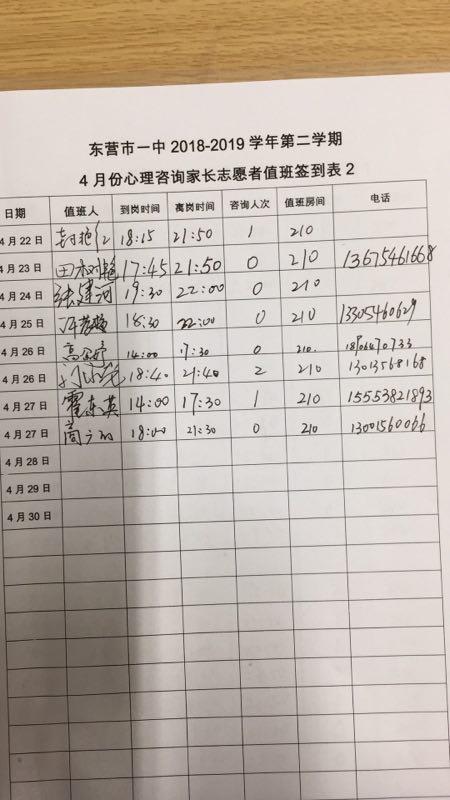 东营市一中 2018-2019 学年第二学期
4 月份心理咨询家长志愿者值班签到表 2
日期 值班人 到岗时间 离岗时间 咨询人次 值班房间 电话
4 月 22 日 18:15 21:50 1 210
4 月 23 日 17:45 21:50 0 210 13675461668
4 月 24 日 张建河 19:30 22:00 0 210
4 月 25 日 18:30 22:00 0 210 13305460629
4 月 26 日 14:00 17:30 0 210. 18906470733
4 月 26 日 18:40 21:40 2 210 13013568168
4 月 27 日 霍东英 14:00 17:30 1 210 15553821893
4 月 27 日 18:00 21:30 0 210 13001560066
4 月 28 日
4 月 29 日
4 月 30 日